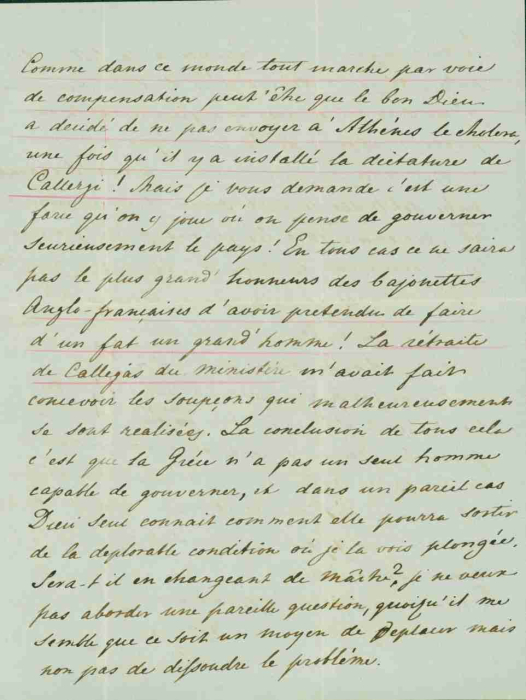 Comme dans ce monde tout marche par voie
de compensation peut'être que le bon Dieu
a decidé de ne pas envoyer à Athénes le cholera,
une fois qu'il y a installé la dictature de
Callergi! Mais je vous demande c'est une
farce qu'on y joue où on pense de gouverner
seurieusement le pays! En tous cas ce ne saira
pas le plus grand' honneurs des bajonettes
Anglo-françaises d'avoir pretendu de faire
d'un fat un grand' homme! La rétraite
de Callegàs du ministére m'avait fait
concevoir les soupçons qui malheureusement
se sont realisées. La conclusion de tous cela
c'est que la Gréce n'a pas un seul homme
capable de gouverner, et dans un pareil cas
Dieu seul connait comment elle pourra sortir
de la deplorable condition où je la vois plongée.
Sera-t il en changeant de maitre? je ne veux
pas aborder une pareille question, quoiqu'il me
semble que ce soit un moyen de deplacer mais
non pas de dissoudre le probléme.